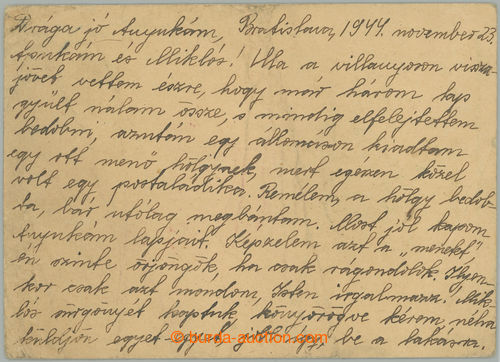 Drága jó Anyukám, Bratislava, 1944. november 23
Apukám és Miklós! Ma a villanyoson vissza
jövet vettem észre, hogy már három lap
gyült nálam össze, s mindig elfelejtettem
bedobni, azután egy állomáson kiadtam
egy ott menő hölgynek, mert egészen közel
volt egy postaládika. Remélem, a hölgy bedob-
ta, bár utólag megbántam. Most jól kapom
Anyukám lapjait. Képzelem azt a „menekt”
én szinte őrjöngök, ha csak ragondolok. Ilyen-
kor csak azt mondom, Isten irgalmazz. Mik-
lós sürgönyét kaptuk, könyörögve kérem, néha
küldjön egyet-egyet, jöttek be a lakásra.
© burda-auction.com